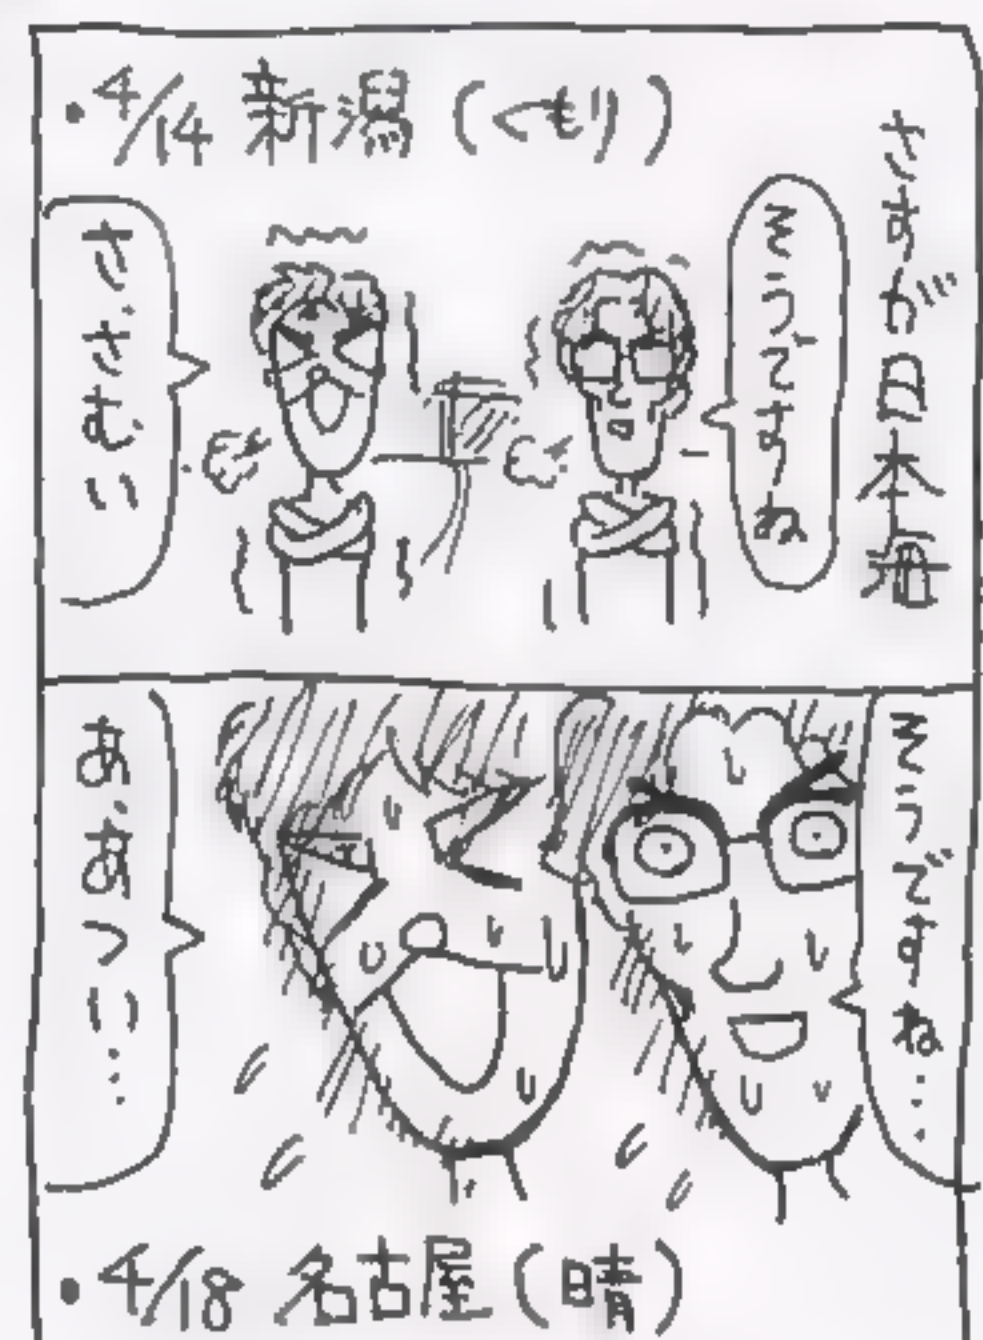 ・4/14 新潟 (くもり)
さすが日本海
そうですね
さ、さむい
そうですね…
あ、あつい…
・4/18 名古屋 (晴)